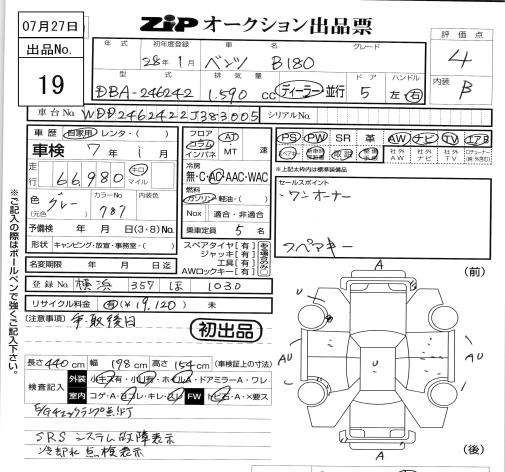 07月27日
ZiP オークション出品票
出品No.
19
評価点
4
内装
B
年式
初年度登録
車名
グレード
28年1月
ベンツ B180
型式
排気量
ドア
ハンドル
DBA-246242
1.590 cc
ディーラー・並行
5
左・右
車台No.
WDD2462422J383005
シリアルNo.
車歴 自家用・レンタ・( )
車検 7年 1月
走行 66,980 キロ マイル
色(元色) グレー
カラーNo 787
内装色
予備検 年 月 日(3・8)No.
形状 キャンピング・放宣・事務室・( )
フロア
コラム
インパネ
AT
MT 速
冷房
無・C・AC・AAC・WAC
燃料
ガソリン・軽油・( )
Nox 適合・非適合
乗車定員 5 名
PS PW SR 革 AW ナビ TV エアB
社外AW
社外ナビ
社外TV
※上記太枠内は標準装備品
セールスポイント
ワンオーナー
スペアキー
スペアタイヤ[有]
ジャッキ[有]
工具[有]
AWロックキー[有]
名変期限 年 月 日迄
登録No. 横浜 357 ほ 1030
リサイクル料金 有(¥19,120) 未
(注意事項)
初出品
長さ440cm 幅178cm 高さ154cm (車検証上の寸法)
検査記入
外装 小キズ有・小凹有・ホイルA・ドアミラーA・ワレ
室内 コゲA・ヨゴレ・キレ・スレ FW トビ石・A・×要ス
E/Gチェックランプ点灯
SRSシステム故障表示
冷却水点検表示
※ご記入の際はボールペンで強くご記入下さい。
(前)
A
U
AU
U
AU
A
(後)